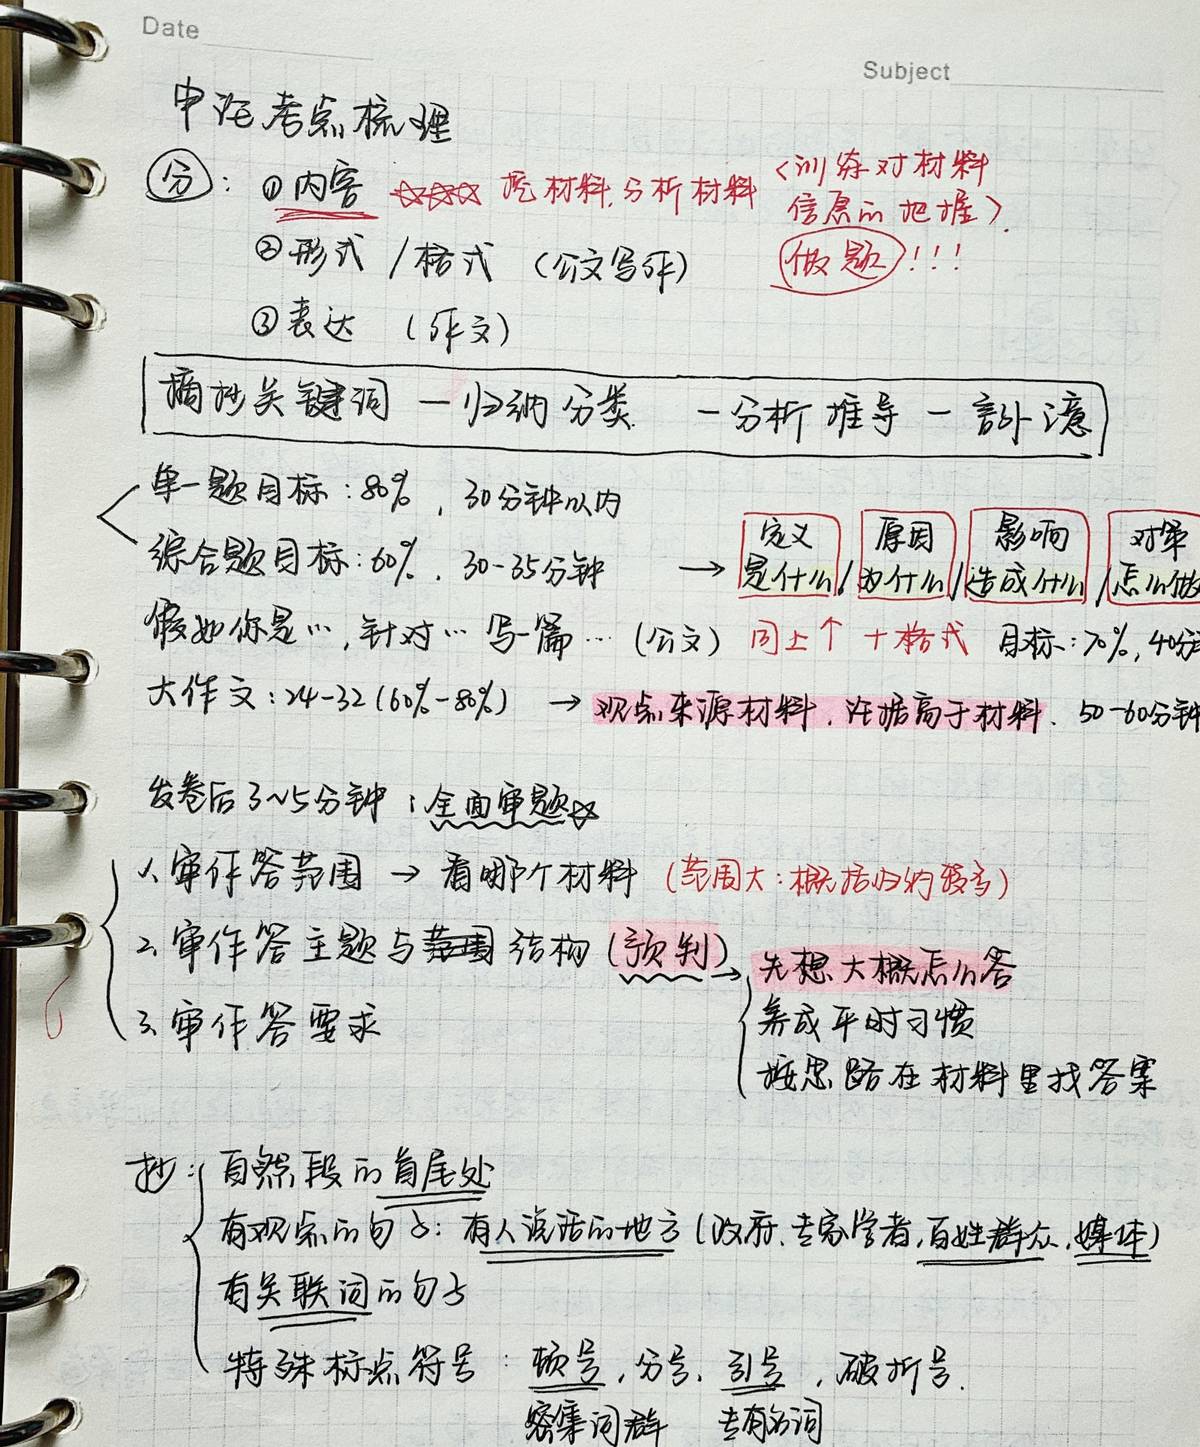 Date
Subject
申论考点梳理
分：①内容 ☆☆☆☆ 挖材料，分析材料 〈训练对材料
信息的把握〉
②形式／格式（公文写作） 做题！！！
③表达（作文）
摘抄关键词 — 归纳分类 — 分析推导 —
单一题目标：80%，30分钟以内
综合题目标：60%，30-35分钟 → 定义 原因 影响 对策
是什么/为什么/造成什么/怎么做
假如你是…，针对…写一篇…（公文）同上↑ 十格式 目标：70%，40分
大作文：24-32（60%-80%） → 观点来源材料，论据高于材料．50-60分钟
发卷后3~5分钟：全面审题☆
1、审作答范围 → 看哪个材料（范围大：概括归纳较多）
2、审作答主题与范围结构（预判）→ 先想大概怎么答
养成平时习惯
3、审作答要求
按思路在材料里找答案
抄：自然段的首尾处
有观点的句子：有人说话的地方（政府、专家学者，百姓群众，媒体）
有关联词的句子
特殊标点符号：顿号，分号，引号，破折号．
密集词群 专有名词